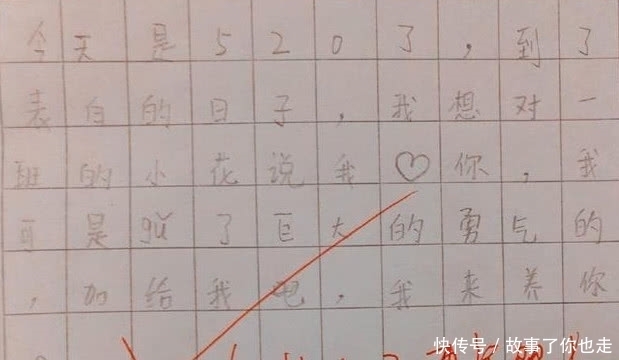 今天是520了,到了
表白的日子,我想对一
班的小花说我♡你,我
可是gǔ了巨大的勇气的
,加给我电,我来养你
快传号/故事了你也走